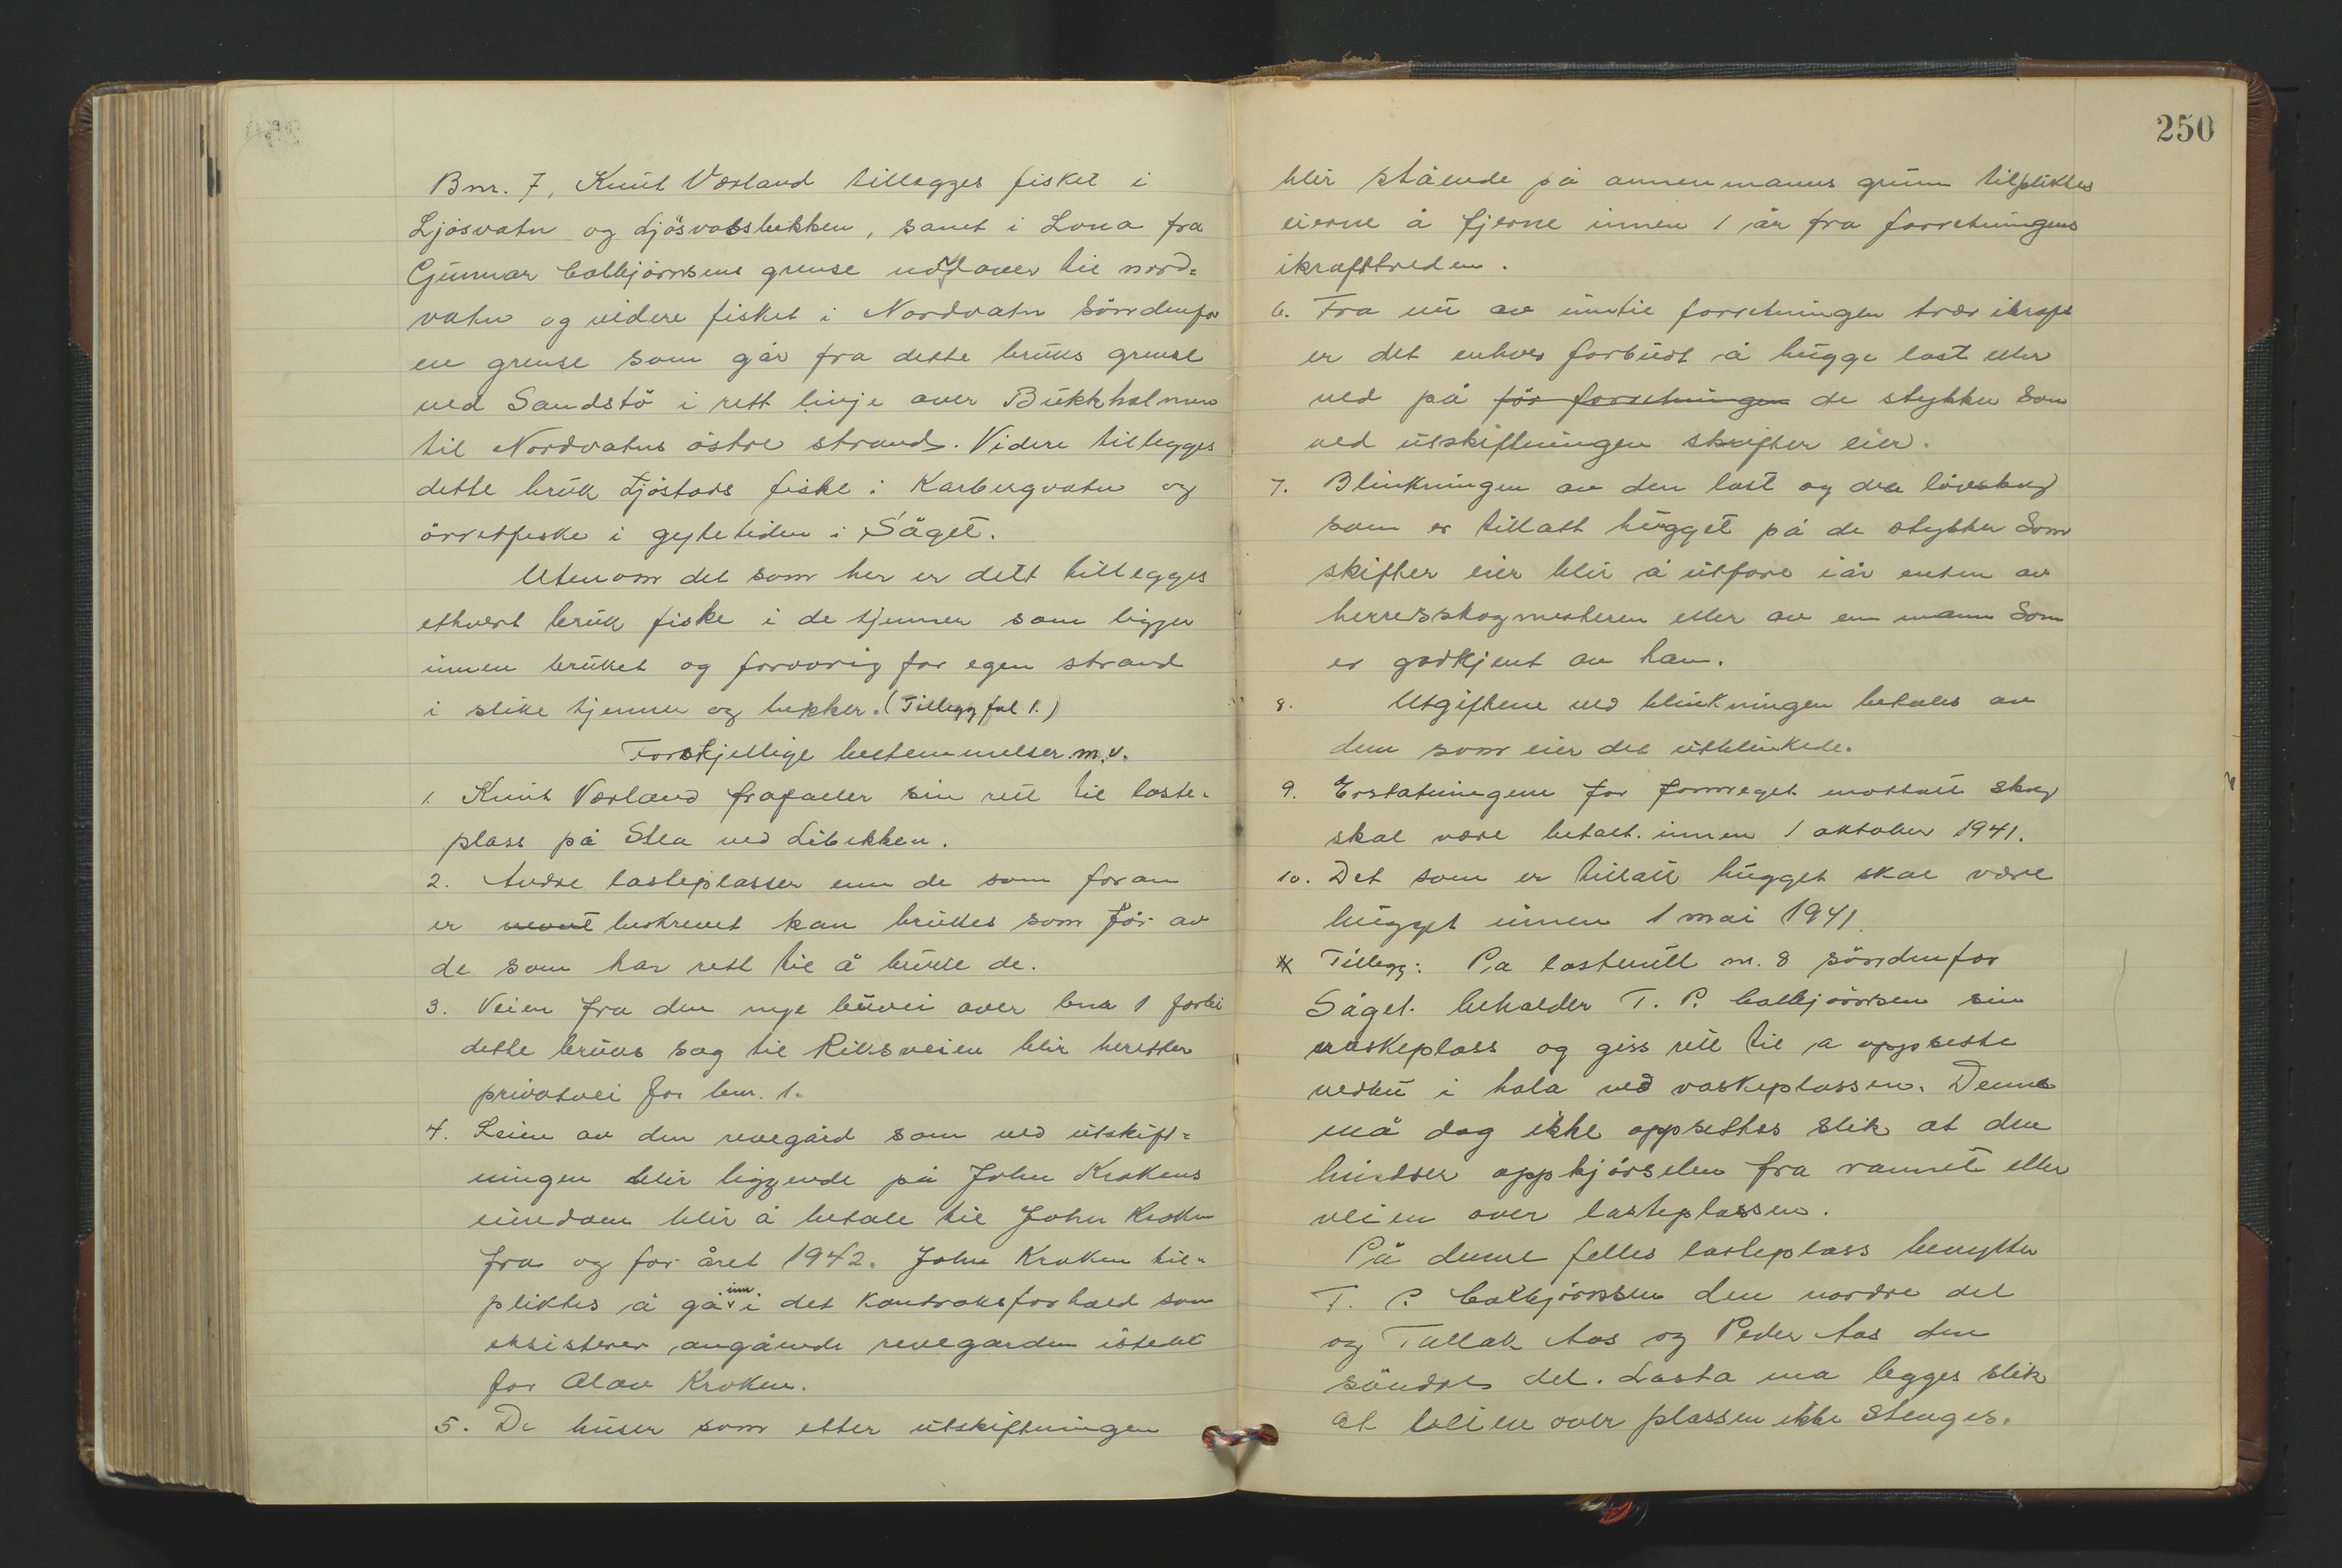 Bnr. 7, Knut Værland tillegges fisket i
Ljösvatn og Ljösvassbekken, samt i Lona fra
Gunnar Colbjörnsens grense nordover til nord-
vatn og videre fisket i Nordvatn sörndenfor
en grense som går fra dette bruks grense
ved Sandstö i rett linje over Bukkholmen
til Nordvatns östre strand. Videre tillegges
dette bruk fiske i Karbergvatn og
örretfiske i gytetiden i Såget.
Utenom det som her er delt tillegges
ethvert bruk fiske i de tjenner som ligger
innen bruket og forövrig for egen strand
i slike tjenner og bekker. (Tillegg fol 1.)
Forskjellige bestemmelser m.v.
1. Knut Værland frafaller sin rett til laste-
plass på Slea ved Libekken.
2. Andre lasteplasser enn de som foran
er nevnt beskrevet kan brukes som för av
de som har rett til å bruke de.
3. Veien fra den nye buvei over bnr 1 forbi
dette bruks sag til Riksveien blir heretter
privatvei for bnr. 1.
4. Leien av den revegård som ved utskift-
ningen blir liggende på John Krokens
eiendom blir å betale til John Kroken
fra og for året 1942. John Kroken til-
pliktes å gå inn i det kontraksforhold som
eksisterer angående revegarden istedet
for Olav Kroken.
5. De huser som etter utskiftningen
250
blir stående på annenmanns grunn tilpliktes
eierne å fjerne innen 1 år fra forretningens
ikrafttreden.
6. Fra nu av inntil forretningen trær ikraft
er det enhver forbudt å hugge last eller
ved på för forretningen de stykker som
ved utskiftningen skifter eier.
7. Blinkningen av den last og den lövskog
som er tillatt hugget på de stykker som
skifter eier blir å utföre i år enten av
herredsskogmesteren eller av en mann som
er godkjent av han.
8. Utgiftene ved blinkningen betales av
dem som eier det utblinkede.
9. Erstatningene for formeget mottatt skog
skal være betalt innen 1 oktober 1941.
10. Det som er tillatt hugget skal være
hugget innen 1 mai 1941.
* Tillegg: På lastetull nr. 8 sörndenfor
Såget beholder T. P. Colbjörnsen sin
vaskeplass og giss rett til a oppsette
vedbu i hola ved vaskeplassen. Denne
må dog ikke oppsettes slik at den
hindrer oppkjörselen fra vannet eller
veien over lasteplassen.
På denne felles lasteplass benytter
T. P. Colbjörnsen den nordre del
og Tallak Aas og Peder Aas den
söndre del. Lasta ma legges slik
at veien over plassen ikke stenges.